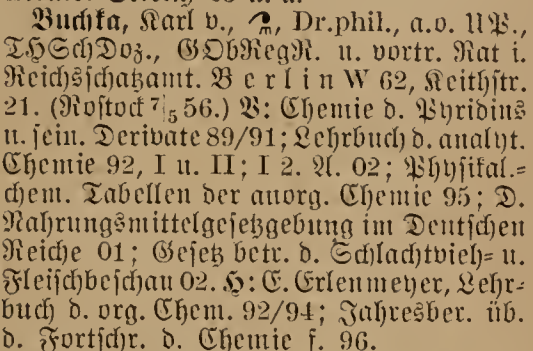 Buchka, Karl v., Dr.phil., a.o. UP.,
THSchDoz., GObRegR. u. vortr. Rat i.
Reichsschatzamt. Berlin W 62, Keithstr.
21. (Rostock 7/5 56.) V: Chemie d. Pyridins
u. sein. Derivate 89/91; Lehrbuch d. analyt.
Chemie 92, I u. II; I 2. A. 02; Physikal.=
chem. Tabellen der anorg. Chemie 95; D.
Nahrungsmittelgesetzgebung im Deutschen
Reiche 01; Gesetz betr. d. Schlachtvieh= u.
Fleischbeschau 02. H: E. Erlenmeyer, Lehr=
buch d. org. Chem. 92/94; Jahresber. üb.
d. Fortschr. d. Chemie f. 96.